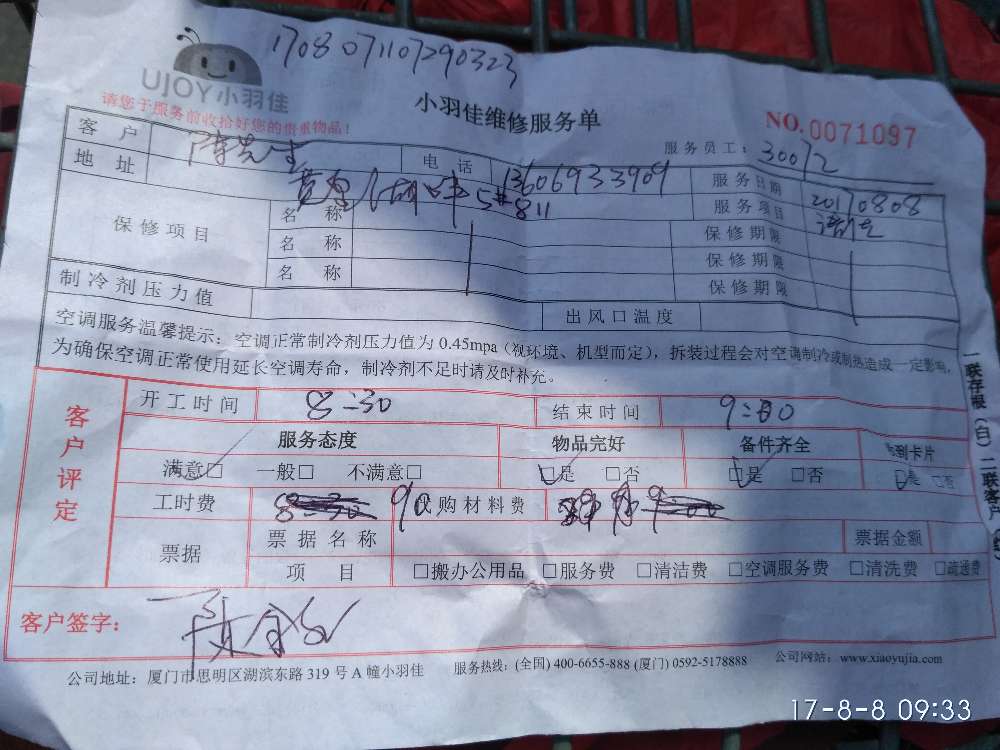 1708071107290323
UJOY小羽佳
请您于服务前收拾好您的贵重物品！
小羽佳维修服务单
NO.0071097
服务员工：30072
客户 陈先生 电话 13606933909 服务日期 20170808
地址 5#811 服务项目 清洗
保修项目 名称 保修期限
名称 保修期限
名称 保修期限
制冷剂压力值 出风口温度
空调服务温馨提示：空调正常制冷剂压力值为 0.45mpa（视环境、机型而定），拆装过程会对空调制冷或制热造成一定影响，
为确保空调正常使用延长空调寿命，制冷剂不足时请及时补充。
客户评定
开工时间 8:30 结束时间 9:00
服务态度 物品完好 备件齐全 到卡片
满意□ 一般□ 不满意□ □是 □否 □是 □否 □是 □否
工时费 90 代购材料费
票据 票据名称 票据金额
项目 □搬办公用品 □服务费 □清洁费 □空调服务费 □清洗费 □疏通费
客户签字：
公司地址：厦门市思明区湖滨东路 319 号 A 幢小羽佳 服务热线：(全国) 400-6655-888 (厦门) 0592-5178888 公司网站：www.xiaoyujia.com
一联存根（白）二联客户
17-8-8 09:33